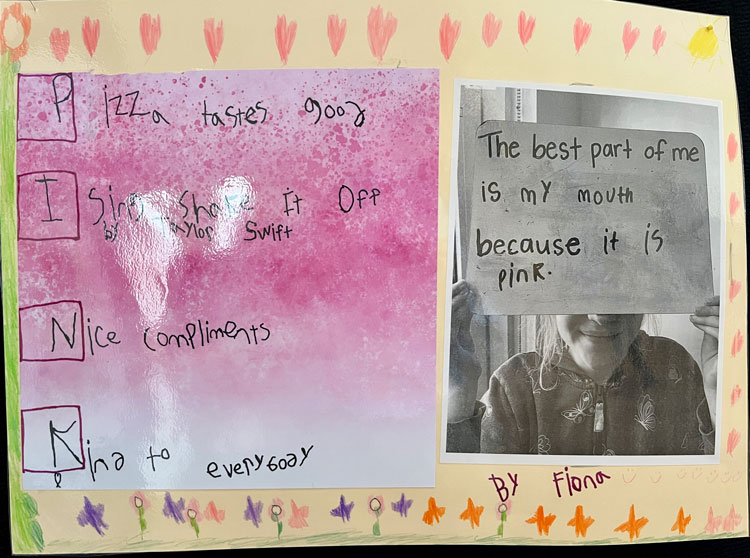 Pizza tastes good
I Sing Shake It Off
by Taylor Swift
Nice compliments
Kind to everybody
The best part of me
is my mouth
because it is
pink.
By Fiona